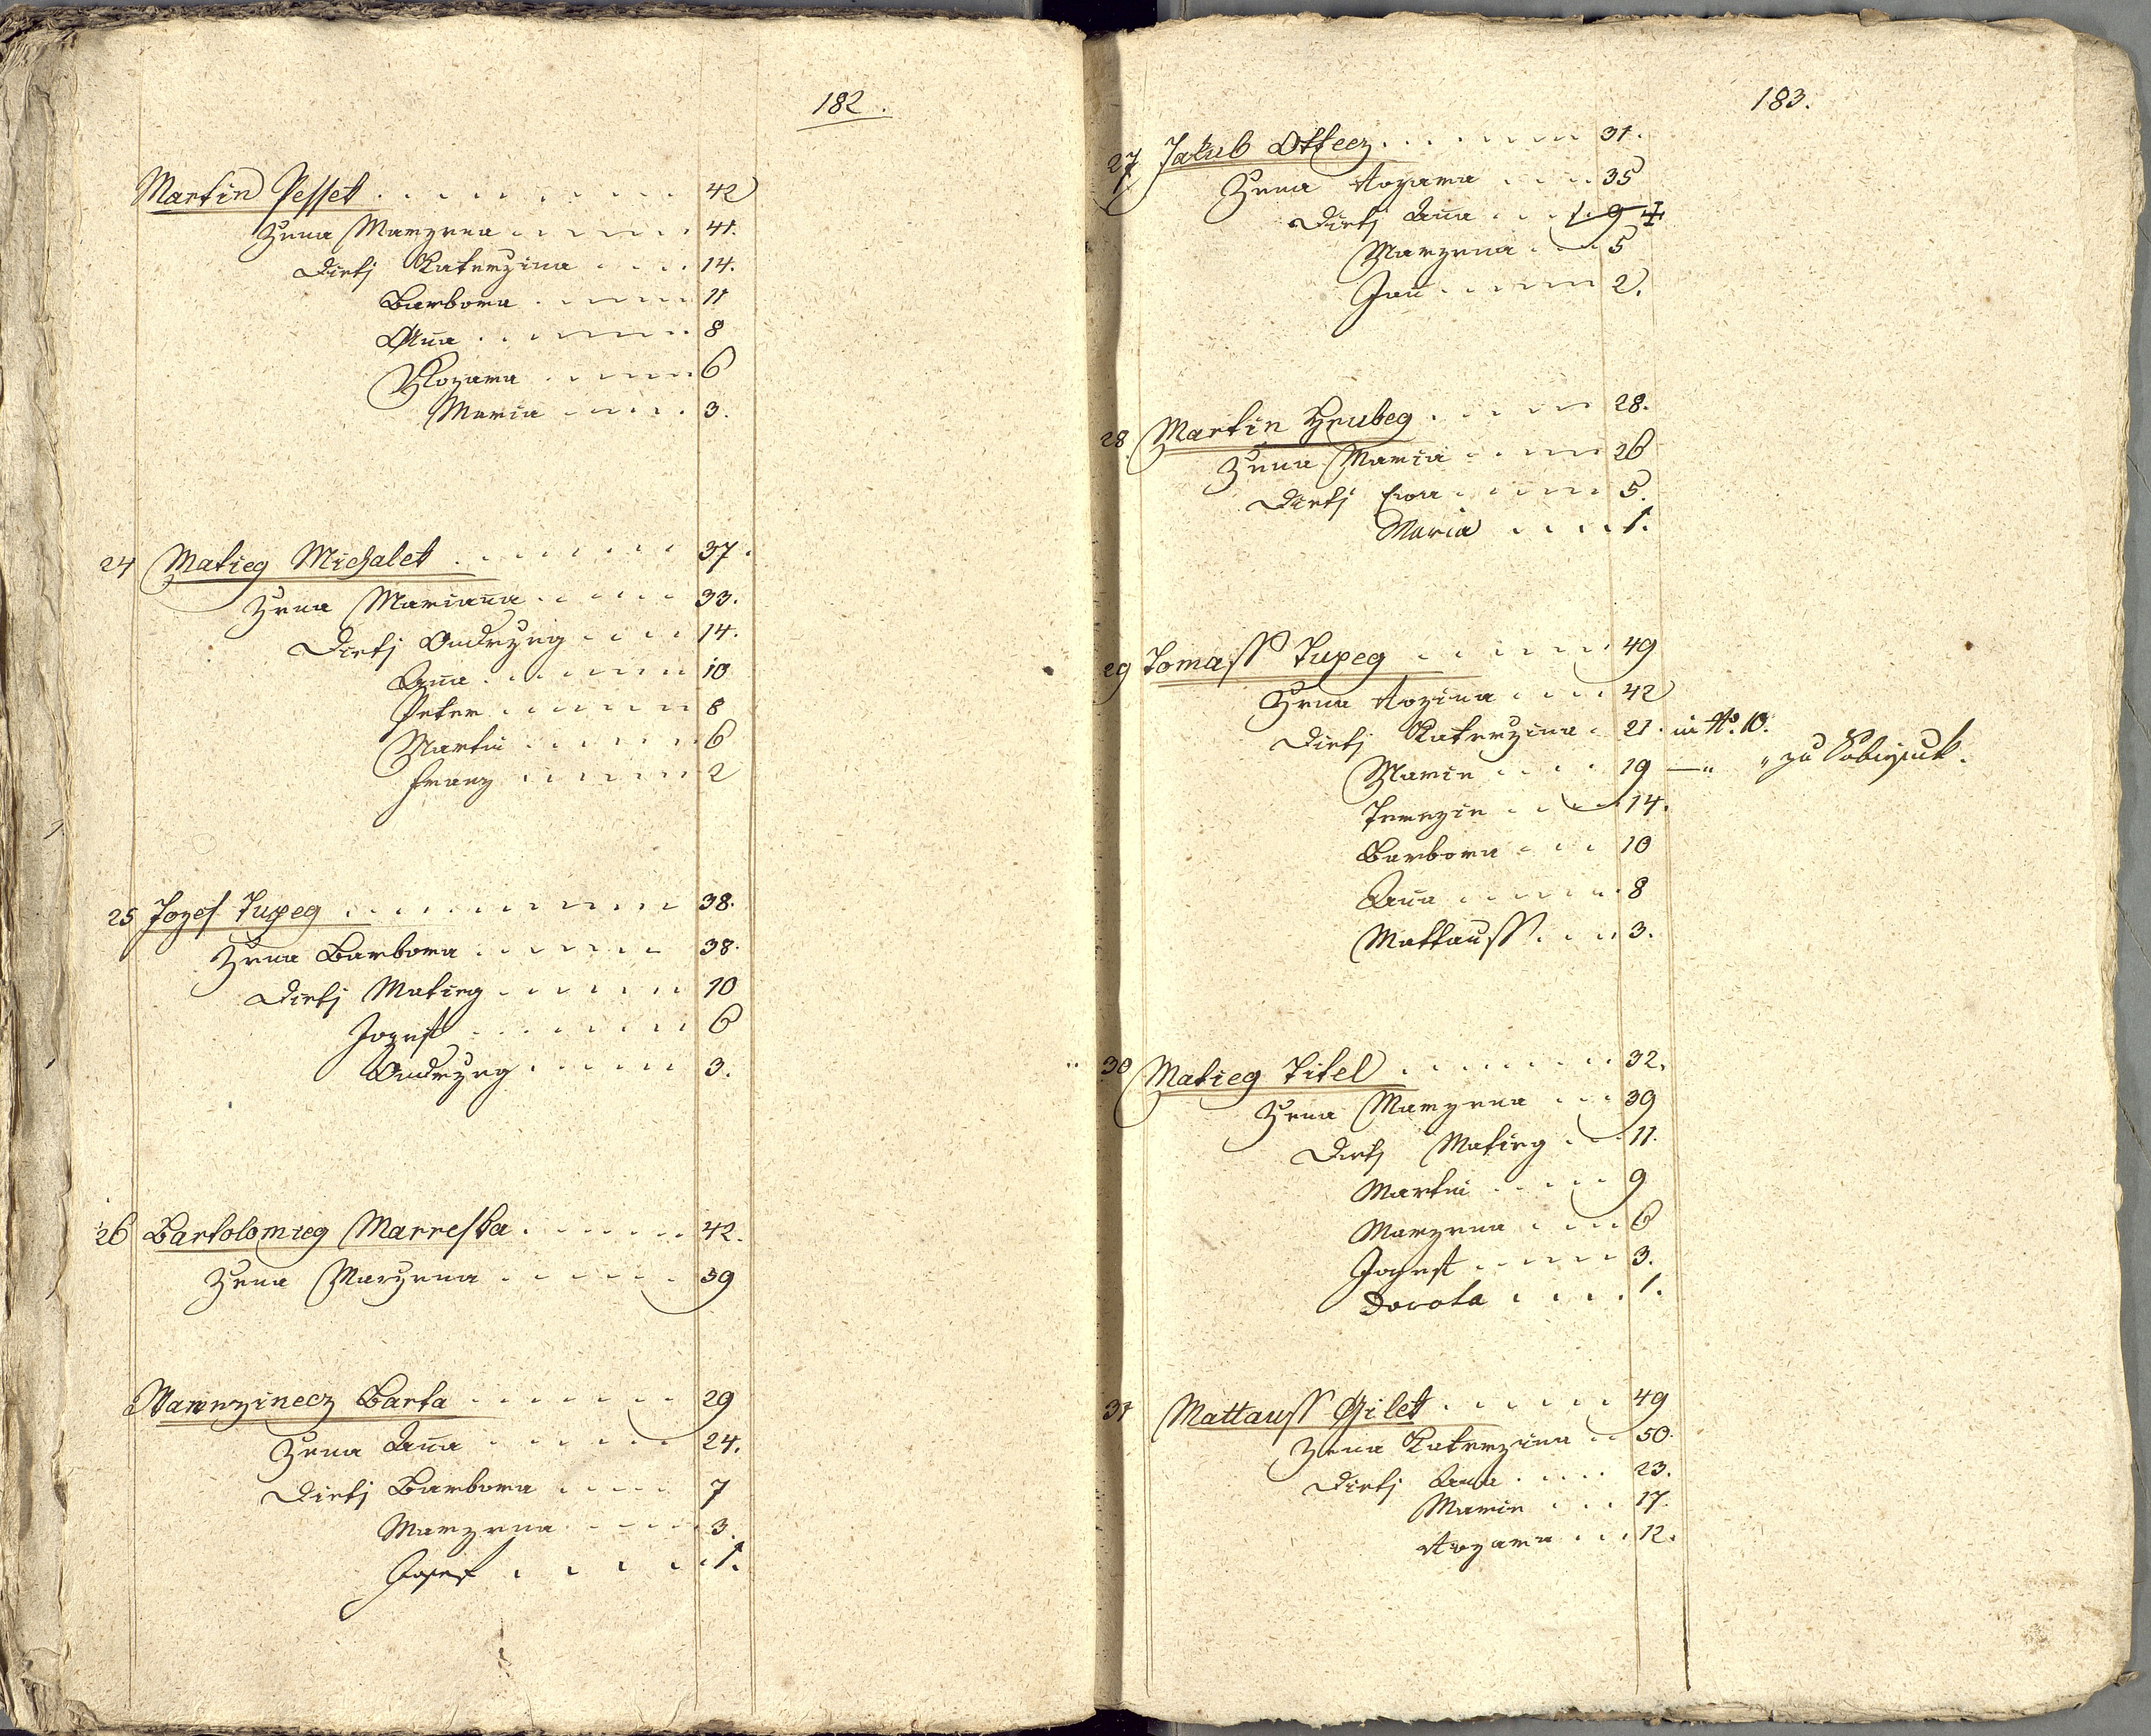 182.
Martin Pessek . . . . . . . . 42
Zena Marzena . . . . . . 41.
Dietj Katerzina . . . . 14.
Barbora . . . . . . 11
Anna . . . . . . . 8
Rozara . . . . . . 6
Maria . . . . . 3.
24 Matieg Michalek . . . . . . . 37.
Zena Marianna . . . . . 33.
Dietj Ondrzeg . . . . 14.
Anna . . . . . . . 10
Peter . . . . . . . 8
Martin . . . . . . 6
Franz . . . . . . 2
25 Jozef Tupeg . . . . . . . . . . 38.
Zena Barbora . . . . . . . 38.
Dietj Matieg . . . . . . . 10
Jozeff . . . . . . . 6
Ondrzeg . . . . . 3.
26 Bartolomieg Marreska . . . . . . 42.
Zena Marzena . . . . . . 39
Wawrzinecz Barta . . . . . . . 29
Zena Anna . . . . . . 24.
Dietj Barbora . . . . 7
Marzena . . . . . 3.
Josef . . . . . 1.
183.
27 Jakub Ottecz . . . . . . . . 31.
Zena Rozara . . . . 35
Dietj Anna . . . . 9 ‡
Marzena . . . 5
Jan . . . . . . 2.
28 Martin Hrubeg . . . . . 28.
Zena Maria . . . . . 26
Dietj Ewa . . . . . . 5.
Maria . . . . 1.
29 Tomass Tupeg . . . . . . . 49
Zena Rozina . . . . 42
Dietj Katerzina . 21. in No. 10.
Marie . . . . 19 — " " zu
Terezie . . . . 14.
Barbora . . . . 10
Anna . . . . . . 8
Mattauss . . . . 3.
30 Matieg Titel . . . . . . . . 32.
Zena Marzena . . . 39
Dietj Matieg . . . 11.
Martin . . . . . 9
Marzena . . . . 6
Josef . . . . . 3.
Dorota . . . . . 1.
31 Mattauss Gilek . . . . . . 49
Zena Katerzina . . 50.
Dietj Anna . . . . . 23.
Marie . . . . 17.
Rozara . . . 12.